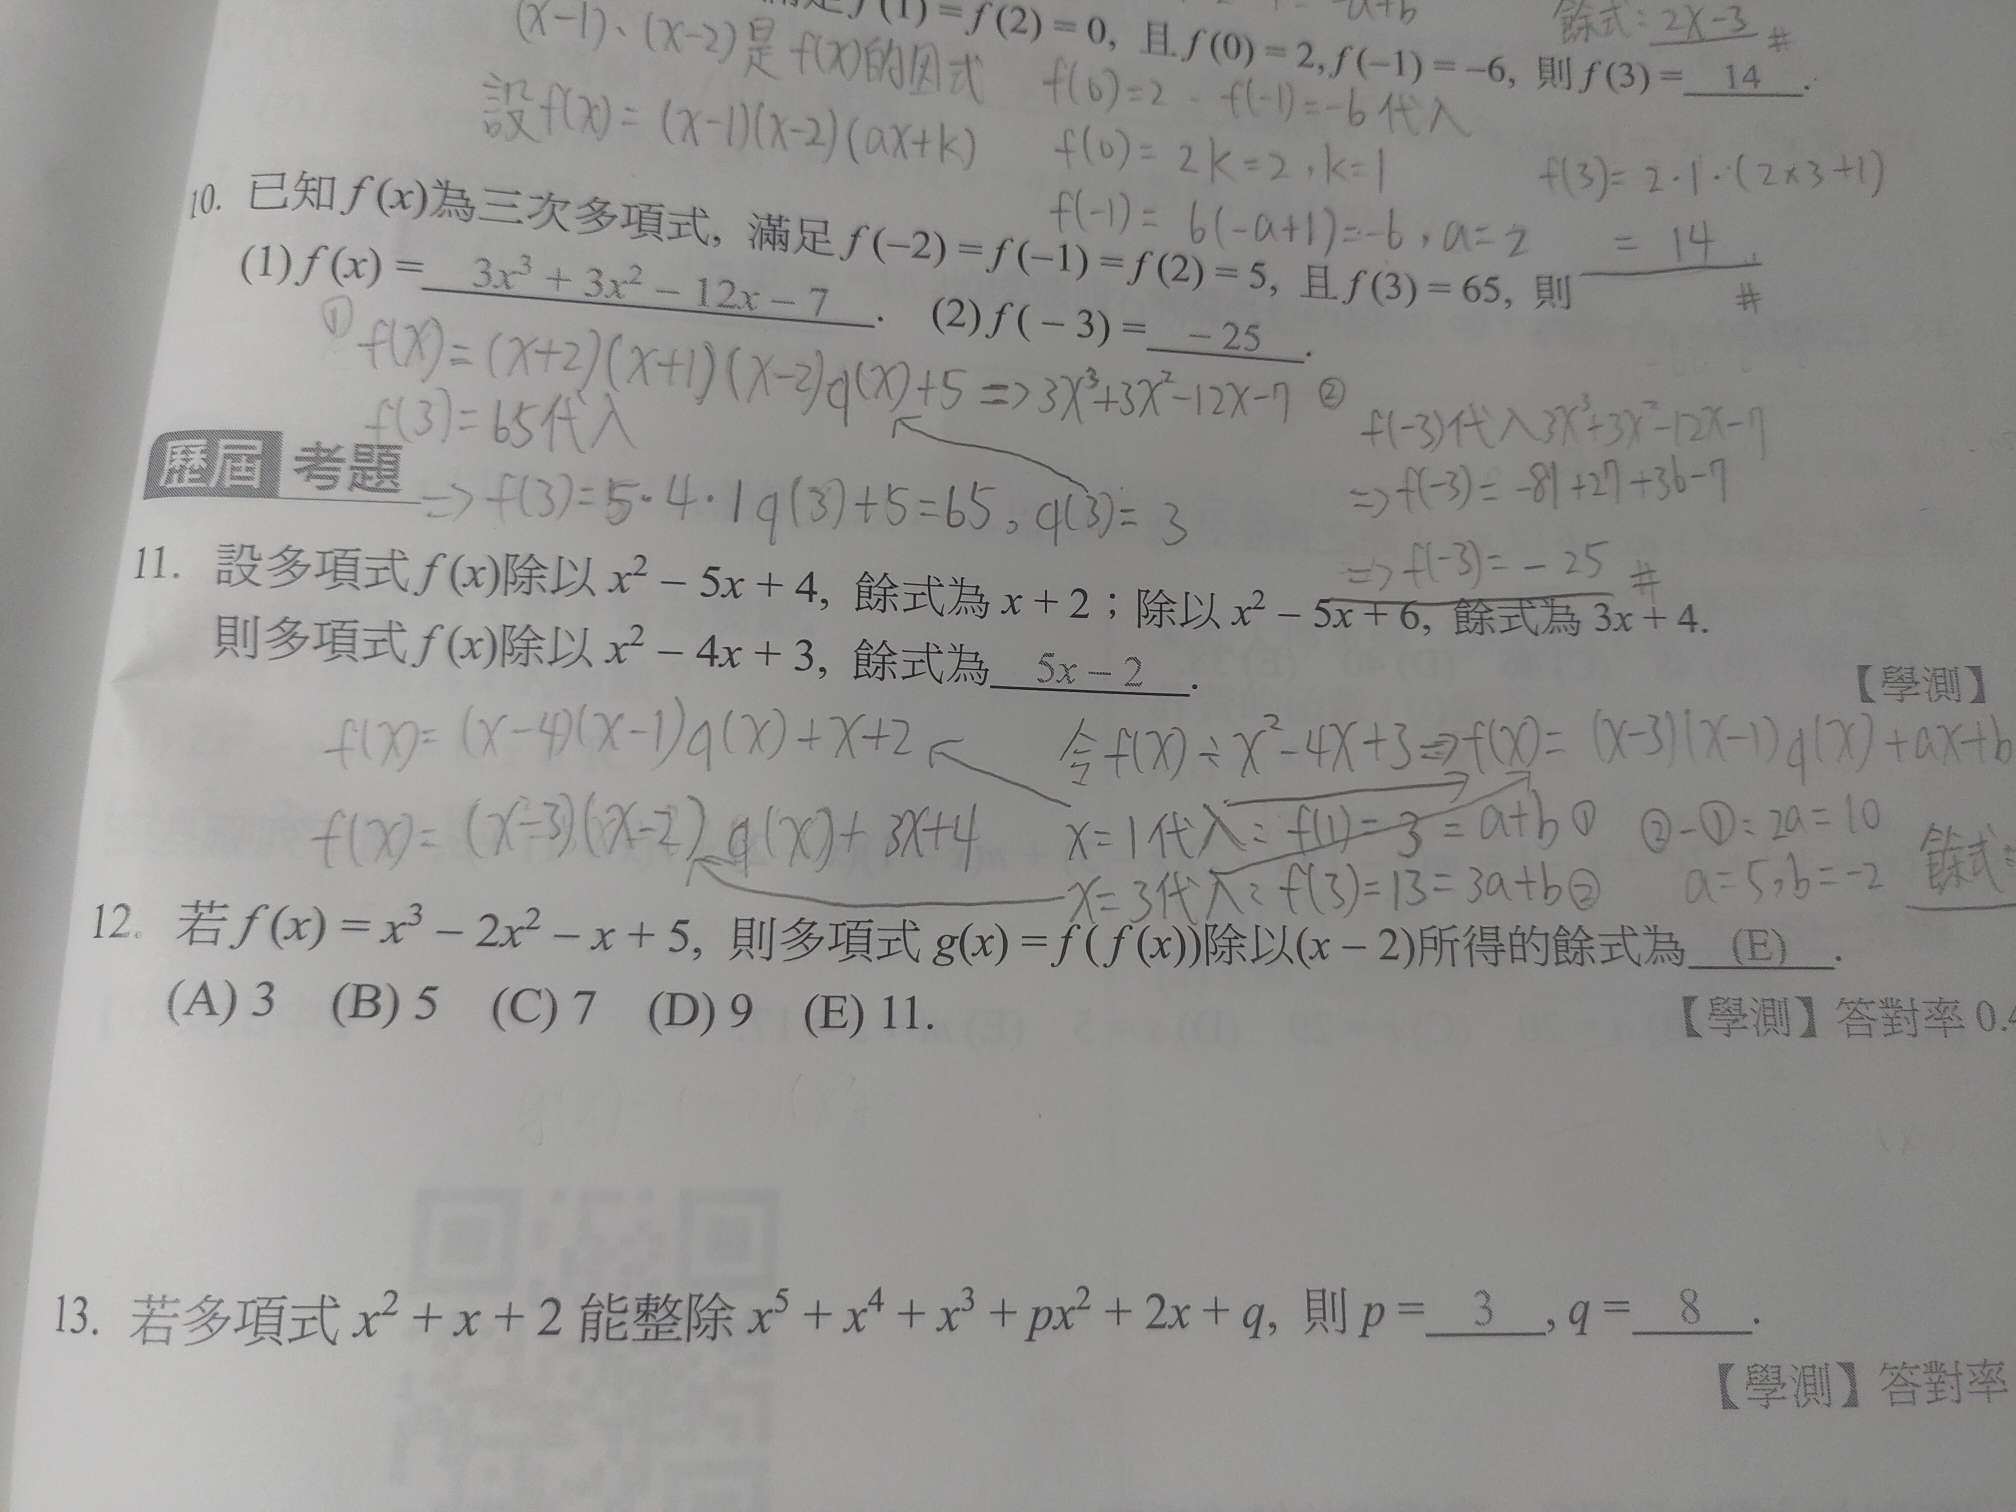 (x-1)、(x-2)是f(x)的因式
f(1) = f(2) = 0, 且 f(0) = 2, f(−1) = −6, 則 f(3) = 14 .
餘式: 2x-3 #
設f(x)= (x-1)(x-2)(ax+k)
f(0)=2 、f(-1)=-6代入
f(0)= 2k=2,k=1
f(-1)= 6(-a+1)=-6,a=2
f(3)= 2·1·(2×3+1)
= 14 #
10. 已知 f (x)為三次多項式, 滿足 f (−2) = f (−1) = f (2) = 5, 且 f (3) = 65, 則
(1) f (x) = 3x³ + 3x² − 12x − 7 . (2) f ( − 3) = − 25 .
① f(x)= (x+2)(x+1)(x-2)q(x)+5 => 3x³+3x²-12x-7
f(3)=65代入
=> f(3)=5·4·1q(3)+5=65, q(3)= 3
② f(-3)代入3x³+3x²-12x-7
=> f(-3)= -81+27+36-7
=> f(-3)= - 25 #
歷屆 考題
11. 設多項式 f (x)除以 x² − 5x + 4, 餘式為 x + 2；除以 x² − 5x + 6, 餘式為 3x + 4.
則多項式 f (x)除以 x² − 4x + 3, 餘式為 5x − 2 .
【學測】
f(x)= (x-4)(x-1)q(x)+x+2
f(x)= (x-3)(x-2) q(x)+3x+4
令f(x)÷x²-4x+3=>f(x)= (x-3)(x-1)q(x)+ax+b
x=1代入: f(1)=3=a+b①
x=3代入: f(3)=13=3a+b②
②-①: 2a=10
a=5,b=-2
餘式:
12. 若 f (x) = x³ − 2x² − x + 5, 則多項式 g(x) = f ( f (x))除以(x − 2)所得的餘式為 (E) .
(A) 3 (B) 5 (C) 7 (D) 9 (E) 11.
【學測】答對率 0.4
13. 若多項式 x² + x + 2 能整除 x⁵ + x⁴ + x³ + px² + 2x + q, 則 p = 3 , q = 8 .
【學測】答對率